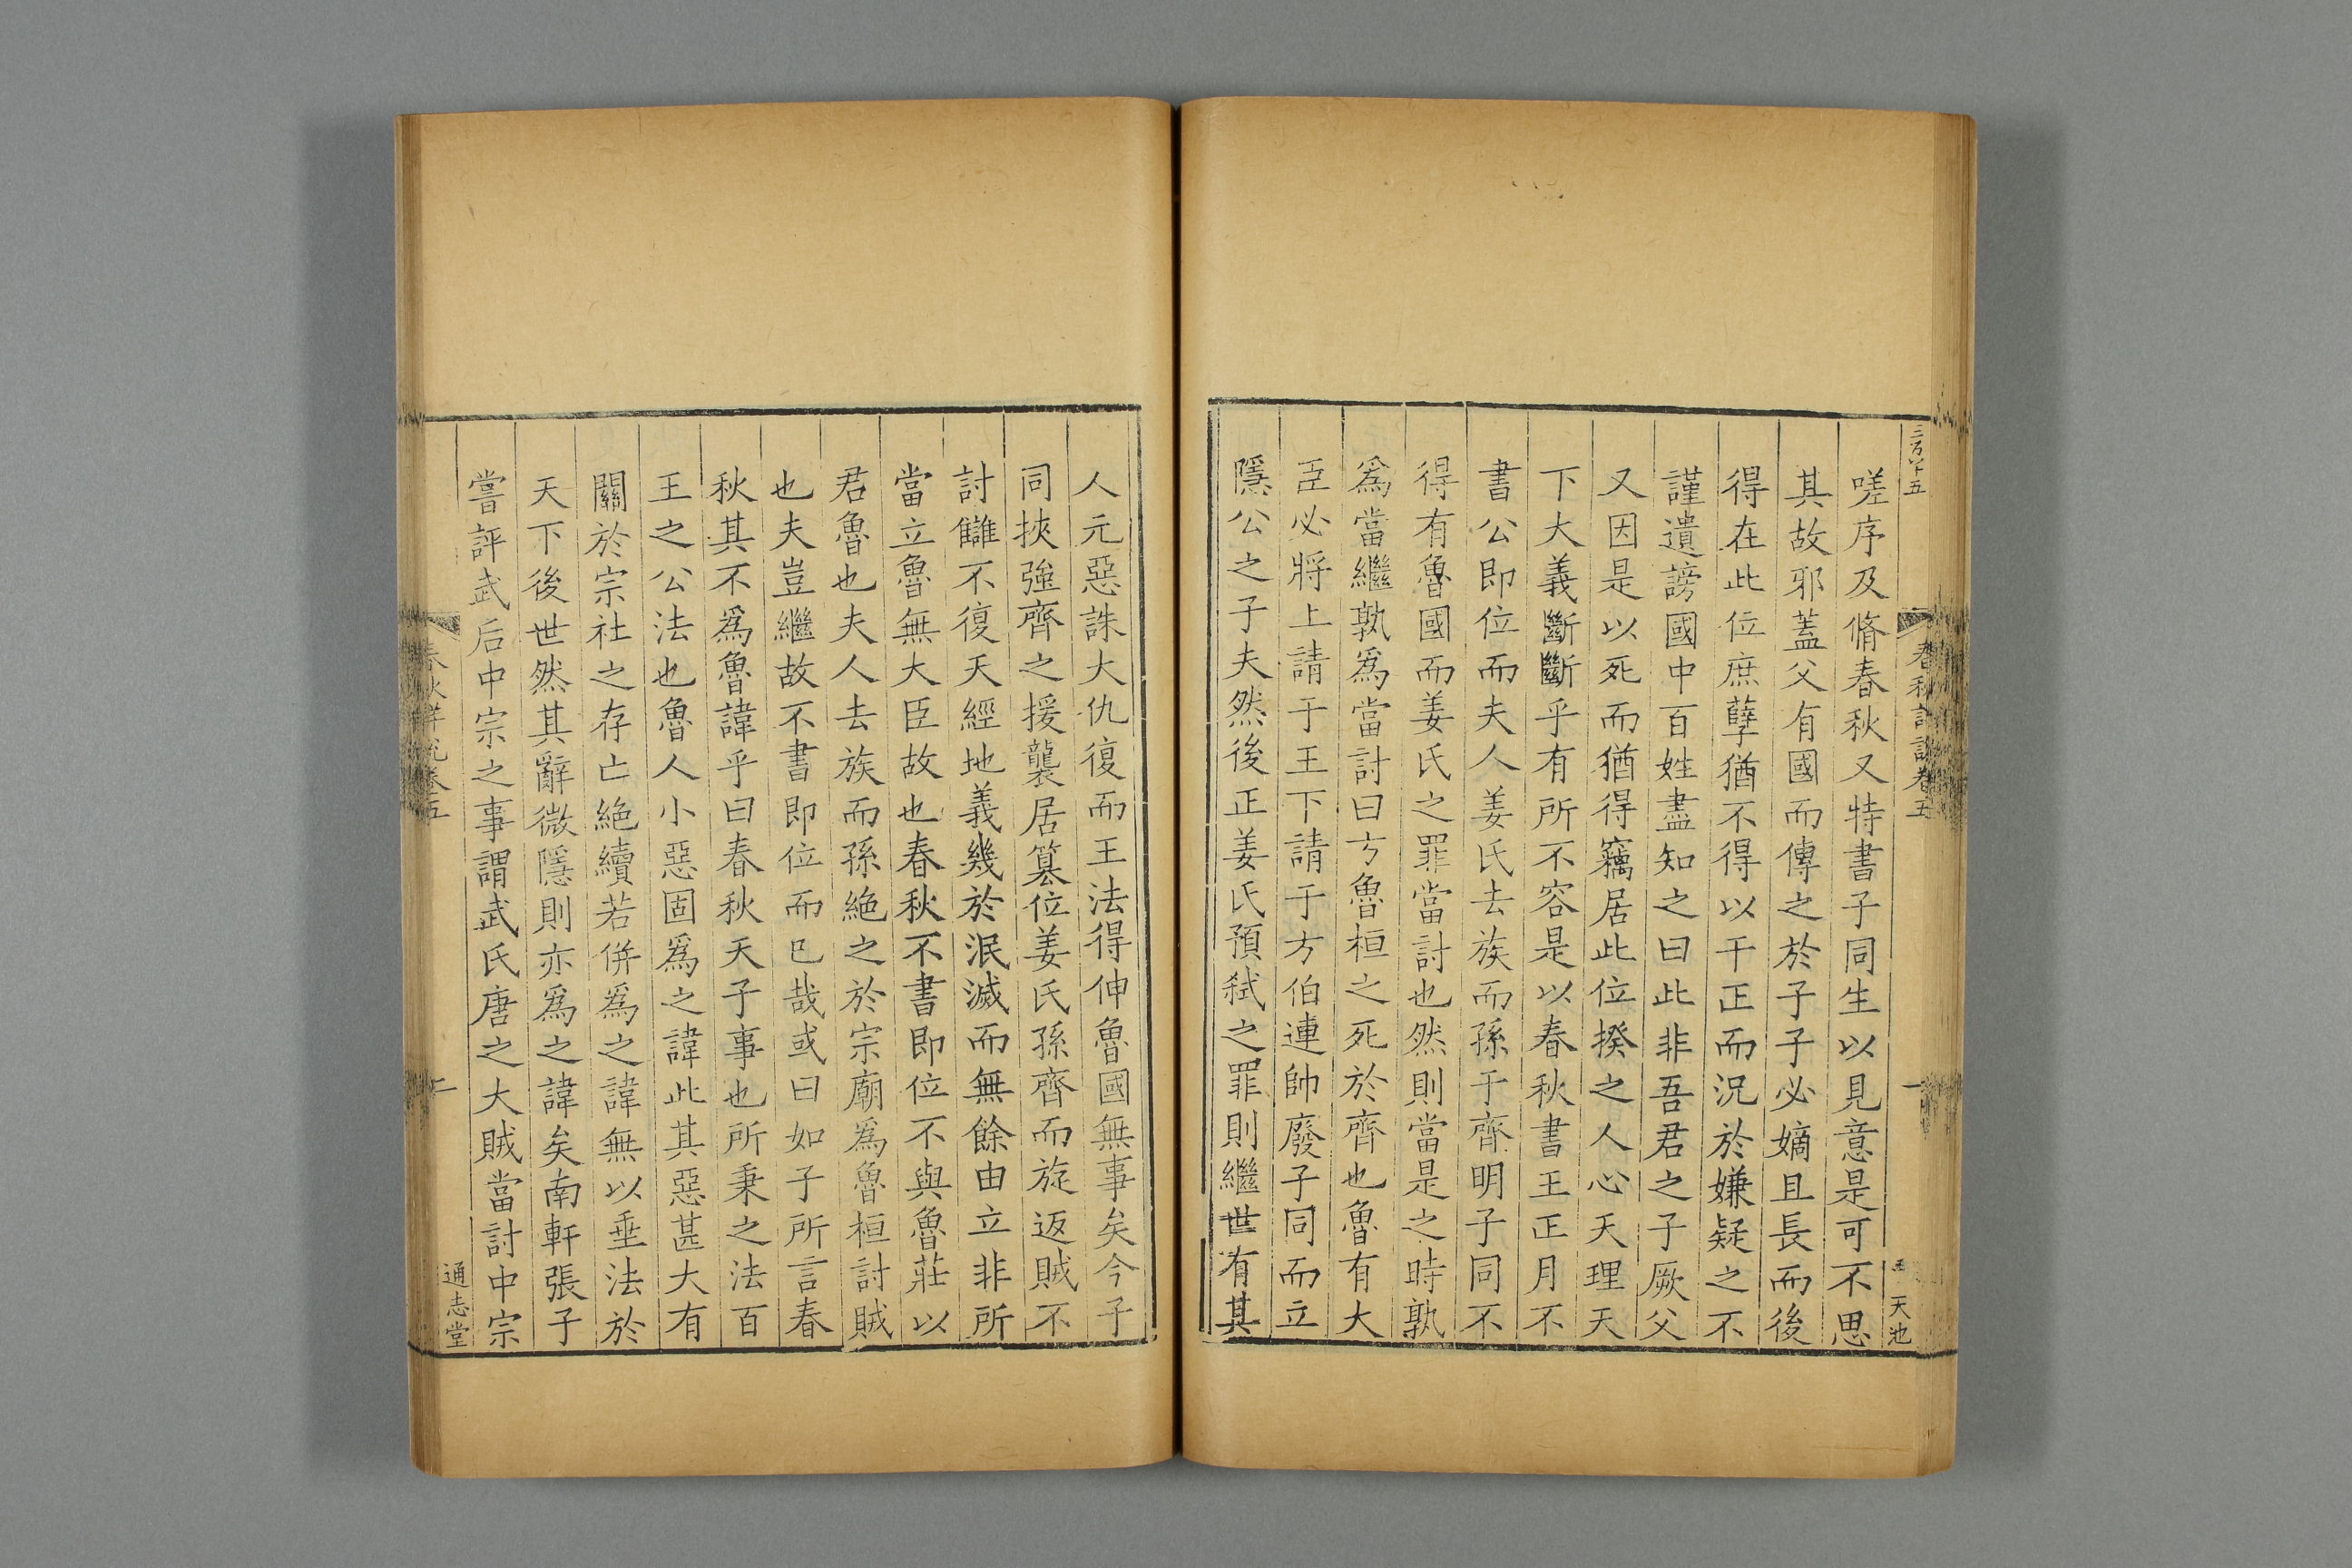 三百八十五
春秋詳說卷五
一
天池
嗟序及脩春秋又特書子同生以見意是可不思
其故邪蓋父有國而傳之於子子必嫡且長而後
得在此位庶孽猶不得以干正而況於嫌疑之不
謹遺謗國中百姓盡知之曰此非吾君之子厥父
又因是以死而猶得竊居此位揆之人心天理天
下大義斷斷乎有所不容是以春秋書王正月不
書公即位而夫人姜氏去族而孫于齊明子同不
得有魯國而姜氏之罪當討也然則當是之時孰
爲當繼孰爲當討曰方魯桓之死於齊也魯有大
臣必將上請于王下請于方伯連帥廢子同而立
隱公之子夫然後正姜氏預弒之罪則繼世有其
人元惡誅大仇復而王法得伸魯國無事矣今子
同挾強齊之援襲居篡位姜氏孫齊而旋返賊不
討讎不復天經地義幾於泯滅而無餘由立非所
當立魯無大臣故也春秋不書即位不與魯莊以
君魯也夫人去族而孫絕之於宗廟爲魯桓討賊
也夫豈繼故不書即位而已哉或曰如子所言春
秋其不爲魯諱乎曰春秋天子事也所秉之法百
王之公法也魯人小惡固爲之諱此其惡甚大有
關於宗社之存亡絕續若併爲之諱無以垂法於
天下後世然其辭微隱則亦爲之諱矣南軒張子
嘗評武后中宗之事謂武氏唐之大賊當討中宗
春秋詳說卷五
二
通志堂